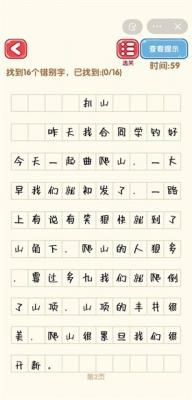 选关
查看提示
找到16个错别字，已找到:(0/16)
时间:59
扒山
昨天我合同学钩好
今天一起曲爬山．一大
早我们就初发了．一路
上有说有笑狠快就到了
山角下．爬山的人狠多
．霉过多九我们就爬倒
了山顶．山顶的丰井很
美．爬山很累旦我们很
开新。
第2页